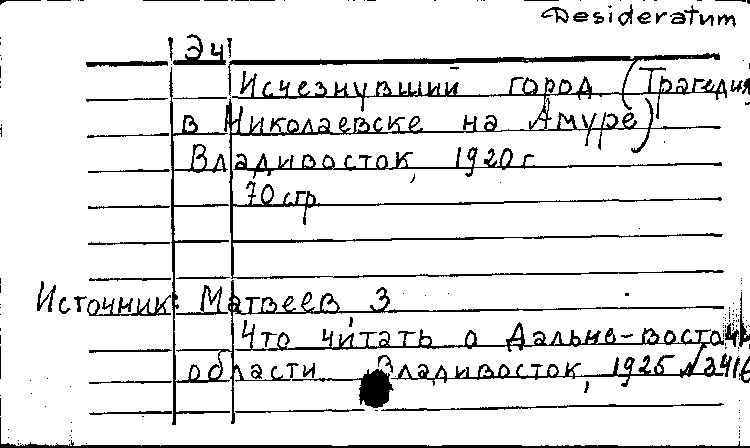 Desideratum
Эч
Исчезнувший город. (Трагедия
в Николаевске на Амуре)
Владивосток, 1920 г.
70 стр.
Источник: Матвеев, З.
Что читать о Дальне-восточн
области. Владивосток, 1925 №3416